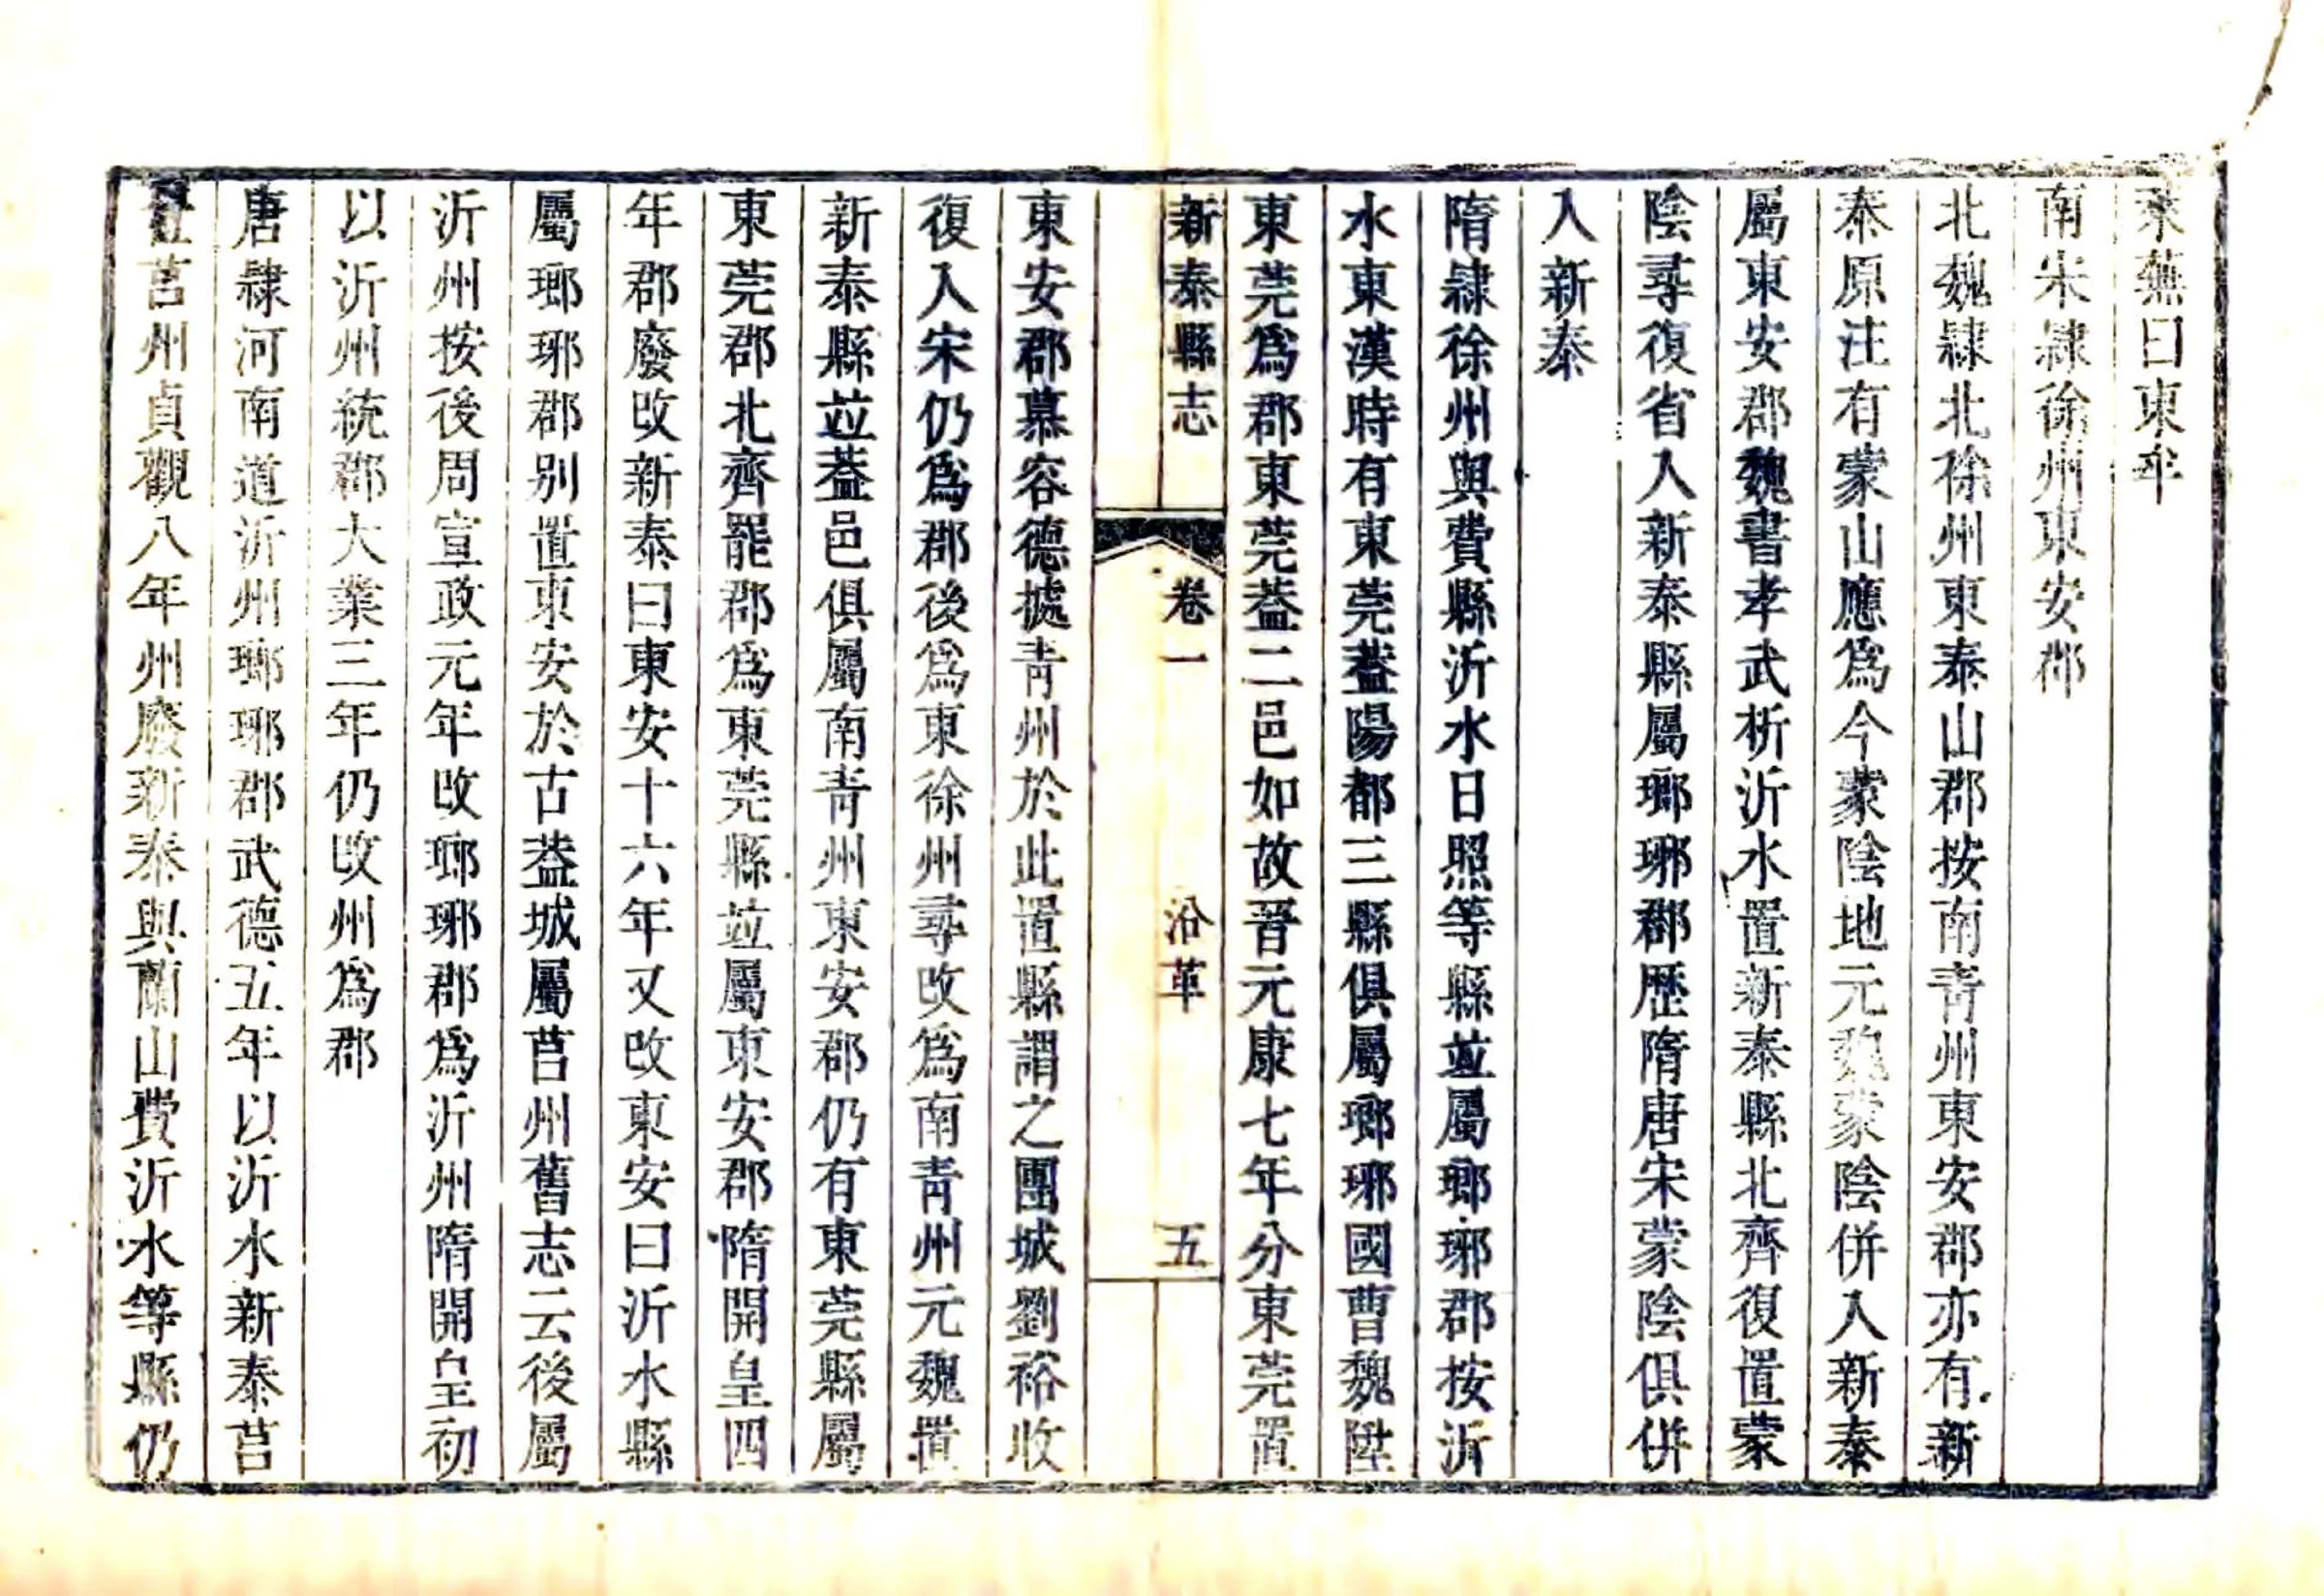 萊蕪曰東牟
南宋隷徐州東安郡
北魏隷北徐州東泰山郡按南青州東安郡亦有新
泰原注有蒙山應爲今蒙陰地元魏蒙陰併入新泰
屬東安郡魏書孝武析沂水置新泰縣北齊復置蒙
陰尋復省入新泰縣屬瑯琊郡歷隋唐宋蒙陰俱併
入新泰
隋隷徐州與費縣沂水日照等縣並屬瑯琊郡按沂
水東漢時有東莞蓋陽都三縣俱屬瑯琊國曹魏陞
東莞爲郡東莞蓋二邑如故晋元康七年分東莞置
新泰縣志
卷一
沿革
五
東安郡慕容德據青州於此置縣謂之團城劉裕收
復入宋仍爲郡後爲東徐州尋改爲南青州元魏置
新泰縣並蓋邑俱屬南青州東安郡仍有東莞縣屬
東莞郡北齊罷郡爲東莞縣並屬東安郡隋開皇四
年郡廢改新泰曰東安十六年又改東安曰沂水縣
屬瑯琊郡別置東安於古蓋城屬莒州舊志云後屬
沂州按後周宣政元年改瑯琊郡爲沂州隋開皇初
以沂州統郡大業三年仍改州爲郡
唐隷河南道沂州瑯琊郡武德五年以沂水新泰莒
置莒州貞觀八年州廢新泰與蘭山費沂水等縣仍